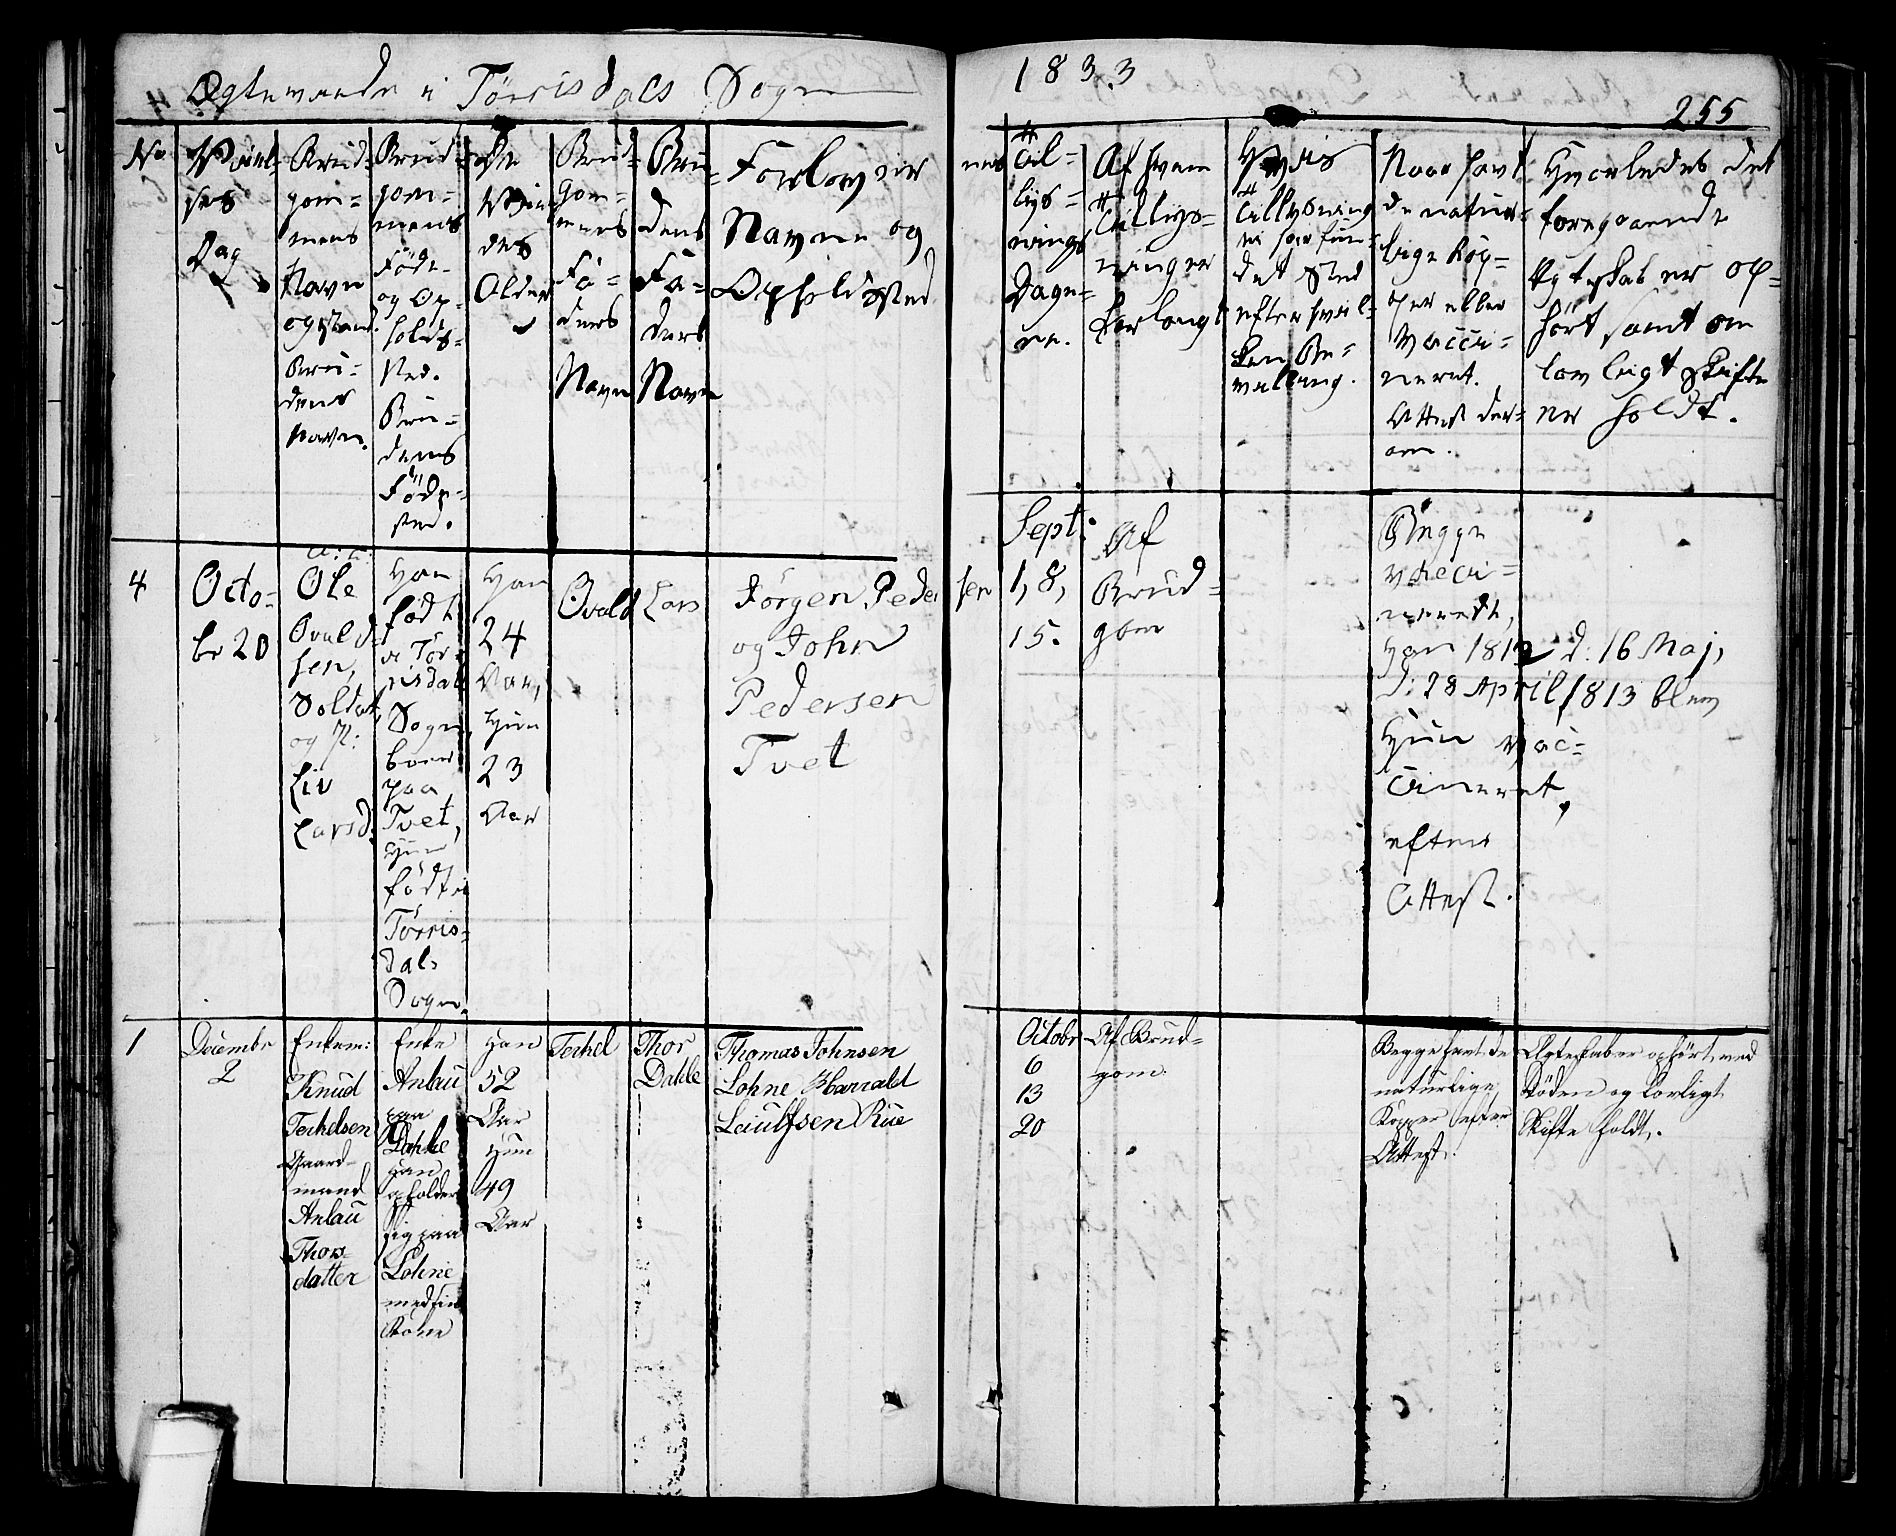 Ægteviede i Törrisdals Sogn
1833
255
No
Vielses
Dag
Brud-
gom-
mens
Navn
og Stand.
Bru-
dens
Navn.
Brud-
gom-
mens
Föde-
og Op-
holds-
sted.
Bru-
dens
Föde-
sted.
De
Viede
des
Alder
Brud-
gom-
mens
Fa-
ders
Navn
Bru-
dens
Fa-
ders
Navn
Forlover
Navne og
Opholdssted
nes
Til-
lys-
nings
Dage-
ne.
Af hvem
Tillys-
ningen
forlangt
Hvis
Tillysning
ei har fun-
det Sted
efter hvil-
ken Be-
villing.
Naar havt
de natur-
lige Kop-
per eller
vacci-
neret.
Attest der-
om.
Hvorledes det
foregaaende
Ægteskab er op-
hört samt om
lovligt Skifte
er holdt.
4
Octo-
br 20
Ole
Ovald-
sen,
Soldat,
og P:
Liv
Larsd.
Han
födt
i Tör-
risdals
Sogn,
boer
paa
Tvet,
Hun
födt i
Törris-
dals
Sogn.
Han
24
Aar,
Hun
23
Aar
Ovald
Lars
Jörgen Peder
og John
Pedersen
Tvet
sen
Sept:
1, 8,
15.
Af
Brud-
gom
Begge
vacci-
nerede,
Han 1812 d: 16 Maj,
d: 28 April 1813 blev
Hun vac-
cineret,
efter
Attest.
1
Decembr
2
Enkem:
Knud
Terkelsen
Gaard-
mand
Anlau
Thors-
datter
Enke
Anlau
paa
Dahle
Han
opholder
sig paa
Lohne
med sin
Kone
Han
52
Aar
Hun
49
Aar
Terkel
Thor
Dahle
Thomas Johnsen
Lohne Harrald
Laulfsen Rüe
Octobr
6
13
20
Af Brud-
gom
Begge havt de
naturlige
Kopper efter
Attest.
Ægteskaber ophört med
Döden og Lovligt
Skifte holdt.